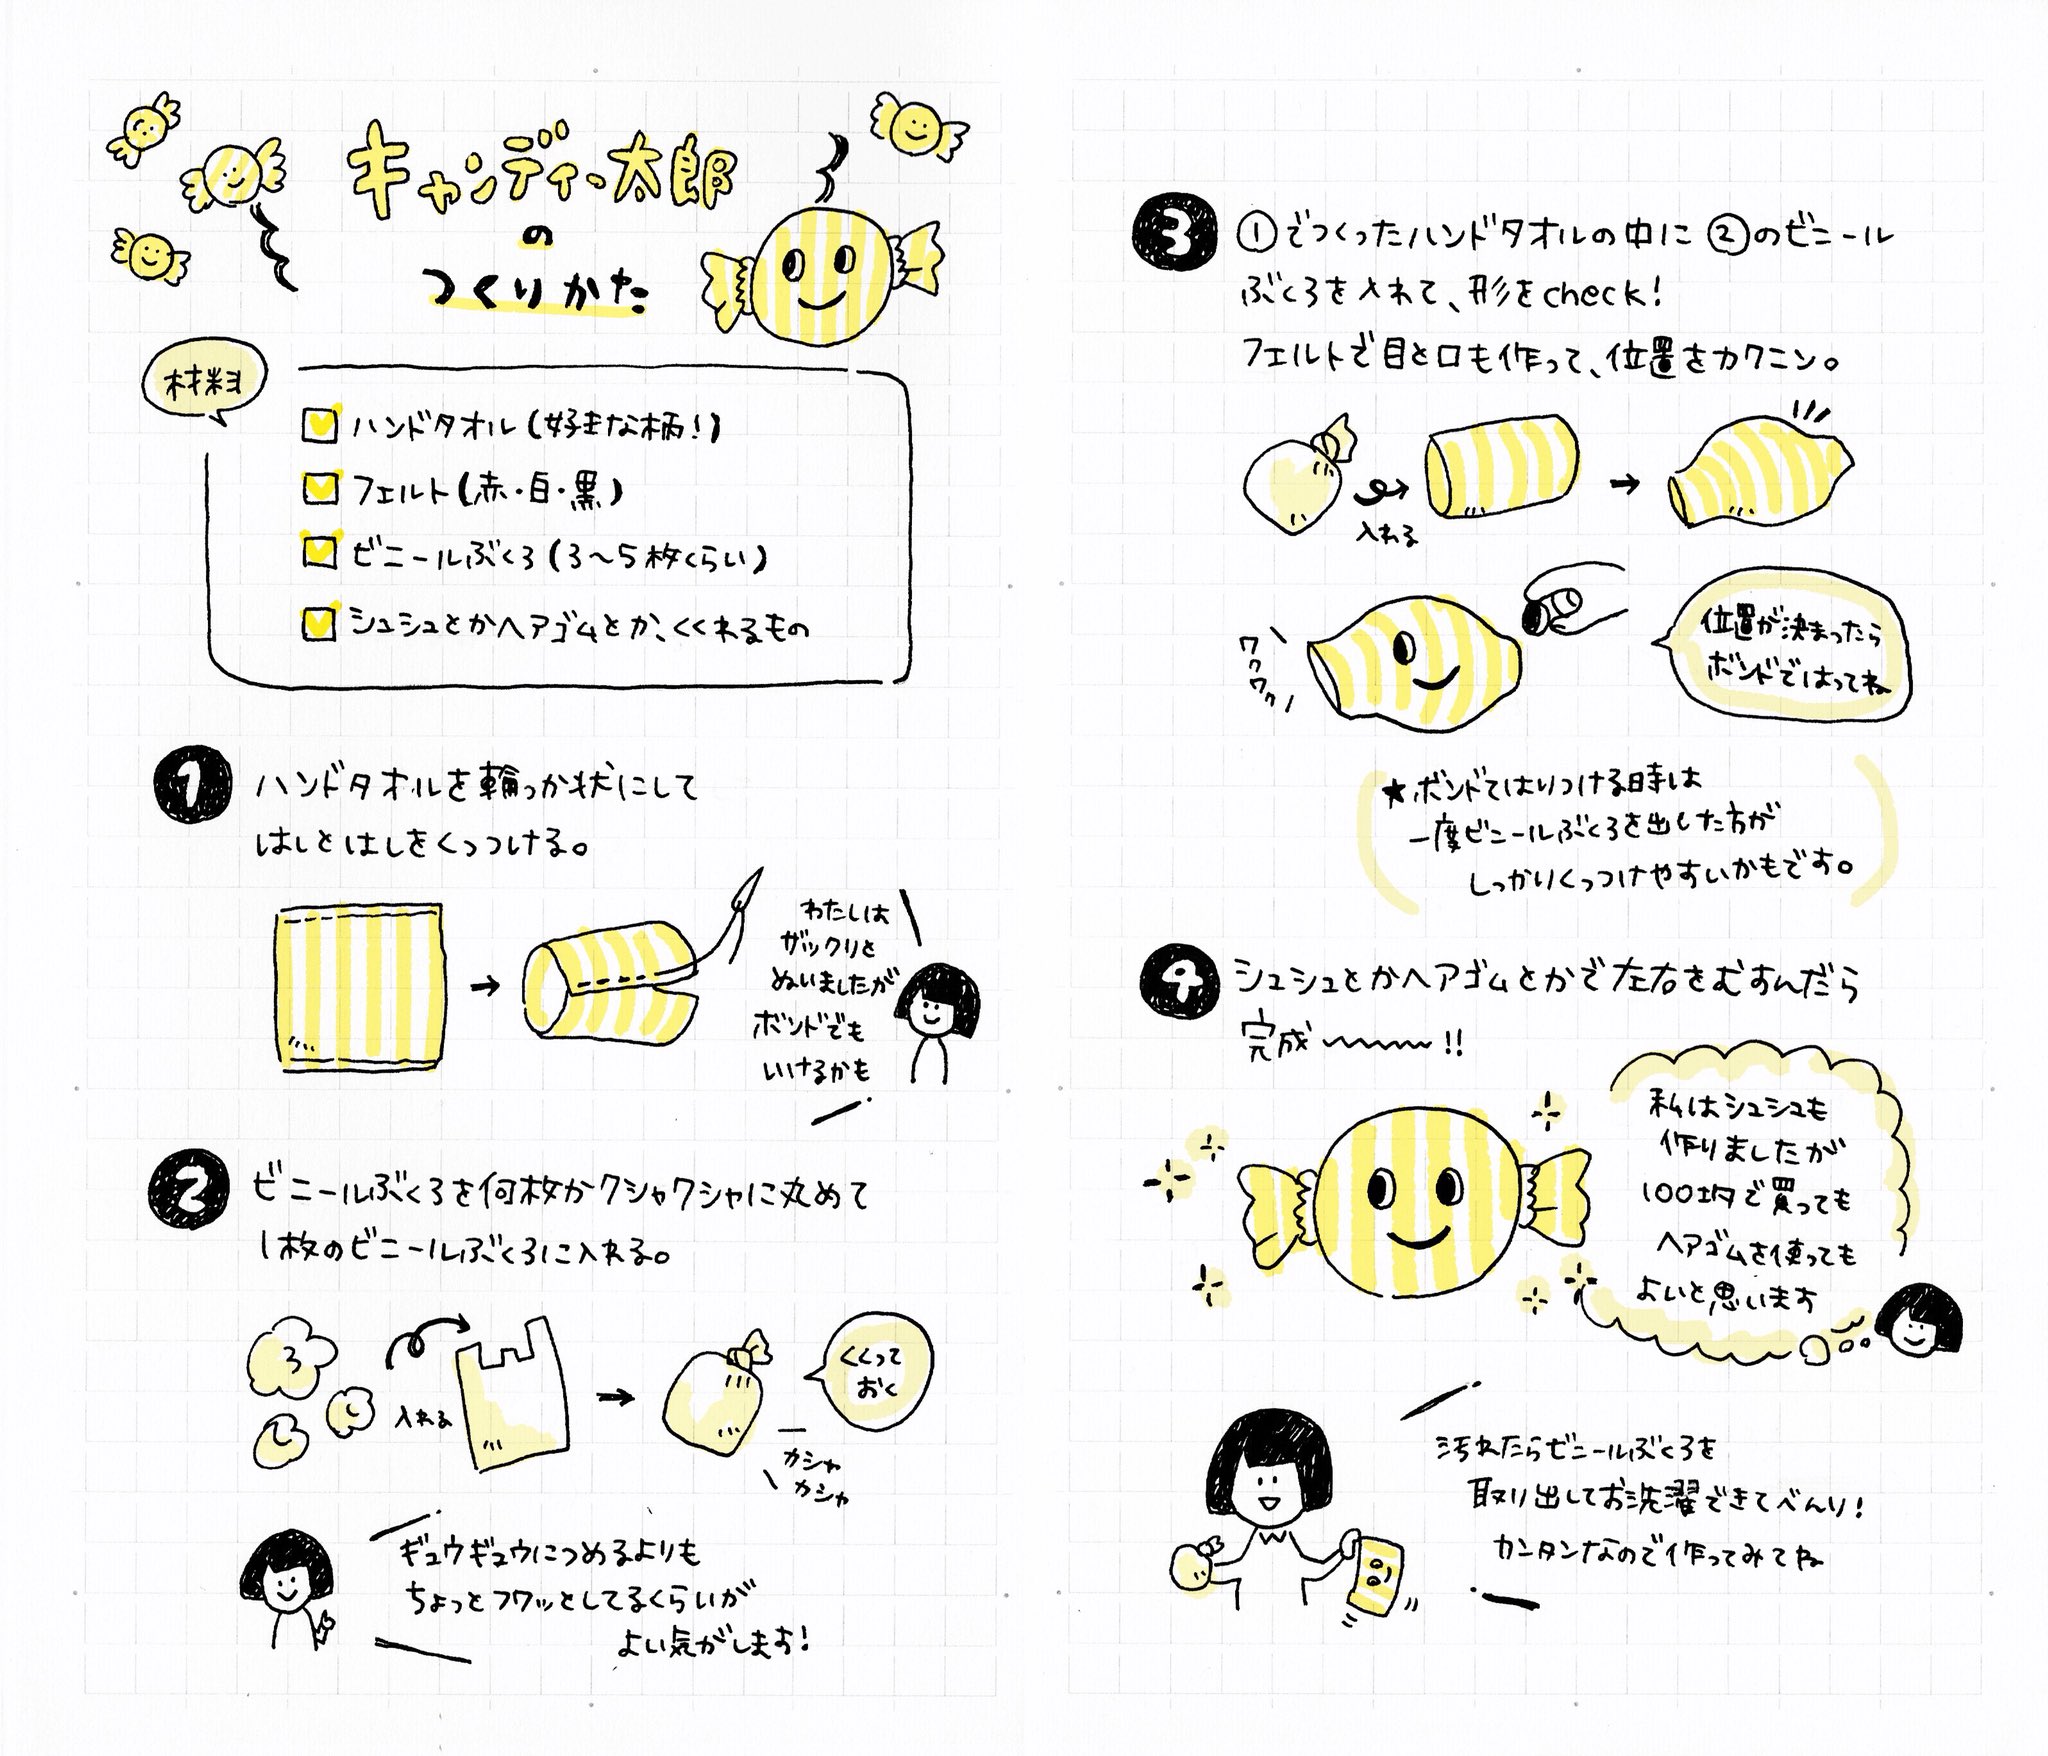 キャンディー太郎
の
つくりかた
材料
ハンドタオル(好きな柄!)
フェルト(赤・白・黒)
ビニールぶくろ(3〜5枚くらい)
シュシュとかヘアゴムとか、くくれるもの
1 ハンドタオルを輪っか状にして
はしとはしをくっつける。
わたしは
ザックリと
ぬいましたが
ボンドでも
いけるかも
2 ビニールぶくろを何枚かクシャクシャに丸めて
1枚のビニールぶくろに入れる。
入れる
くくって
おく
カシャ
カシャ
ギュウギュウにつめるよりも
ちょっとフワッとしてるくらいが
よい気がします!
3 ①でつくったハンドタオルの中に②のビニール
ぶくろを入れて、形をcheck!
フェルトで目と口も作って、位置をカクニン。
入れる
ワクワク
位置が決まったら
ボンドではってね
★ボンドではりつける時は
一度ビニールぶくろを出した方が
しっかりくっつけやすいかもです。
4 シュシュとかヘアゴムとかで左右をむすんだら
完成〜〜〜!!
私はシュシュも
作りましたが
100均で買っても
ヘアゴムを使っても
よいと思います
汚れたらビニールぶくろを
取り出してお洗濯できてべんり!
カンタンなので作ってみてね